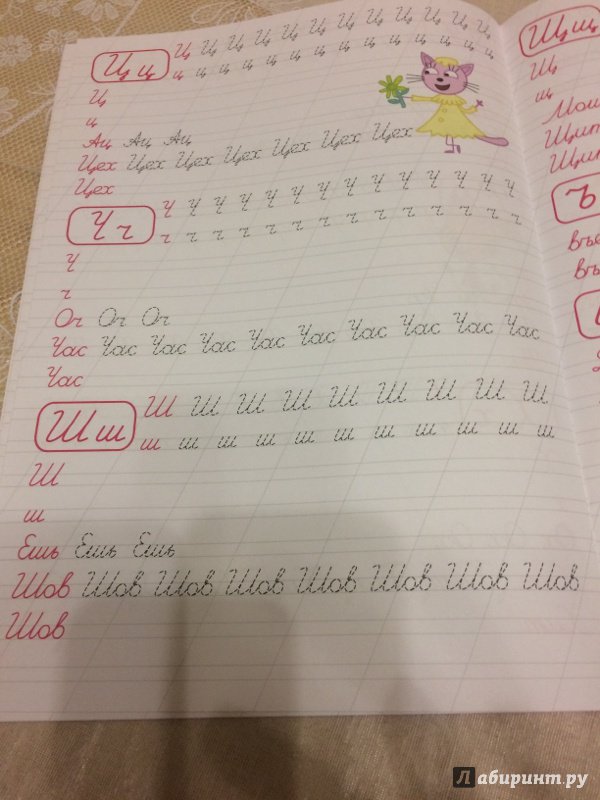 Ц ц
Ц Ц Ц Ц Ц Ц Ц Ц Ц Ц Ц Ц
ц ц ц ц ц ц ц ц ц ц ц ц ц ц
Ц
ц
Ац Ац Ац
Цех Цех Цех Цех Цех Цех Цех
Цех
Ч ч
Ч Ч Ч Ч Ч Ч Ч Ч Ч Ч Ч Ч Ч Ч
ч ч ч ч ч ч ч ч ч ч ч ч ч ч
Ч
ч
Оч Оч Оч
Час Час Час Час Час Час Час Час Час Час
Час
Ш ш
Ш Ш Ш Ш Ш Ш Ш Ш Ш
ш ш ш ш ш ш ш ш ш ш ш
Ш
ш
Ешь Ешь Ешь
Шов Шов Шов Шов Шов Шов Шов Шов
Шов
Щщ
Щ
щ
Ъ
Лабиринт.ру